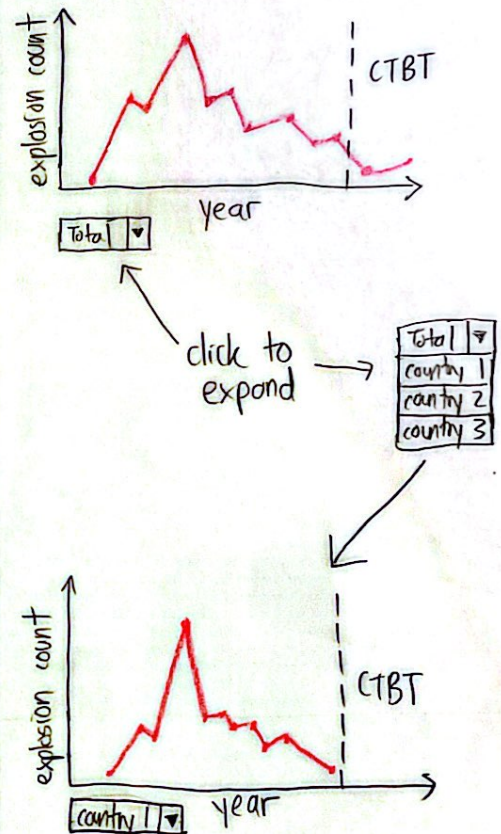 explosion count
CTBT
year
Total
click to
expand
Total
country 1
country 2
country 3
explosion count
CTBT
country 1
year